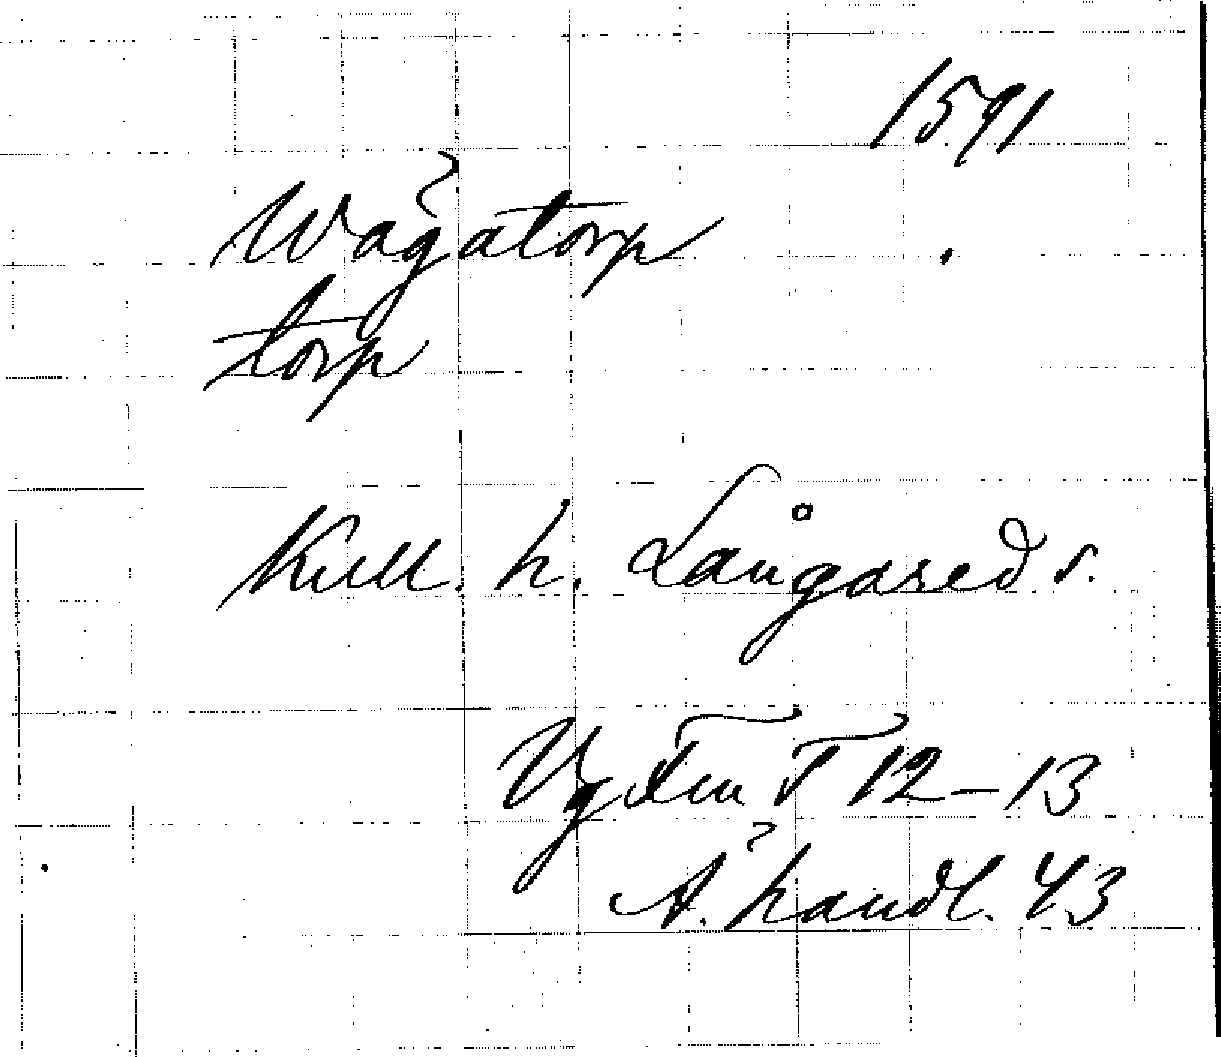 1591
Wagatorp
torp
Kull. h. Långared s.
Vg Fru T 12-13
A. handl. 43